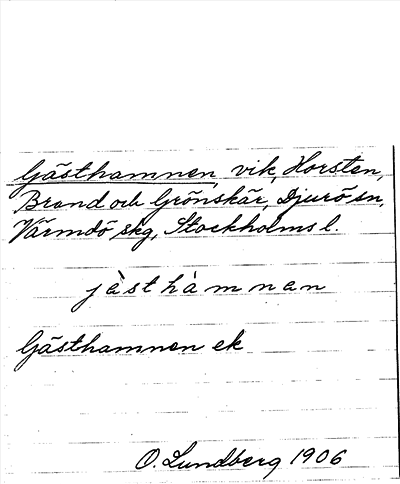 Gästhamnen, vik, Horsten,
Brand och Grönskär, Djurö sn,
Värmdö skg, Stockholms l.
jàsthàmnan
Gästhamnen ek
O. Lundberg 1906